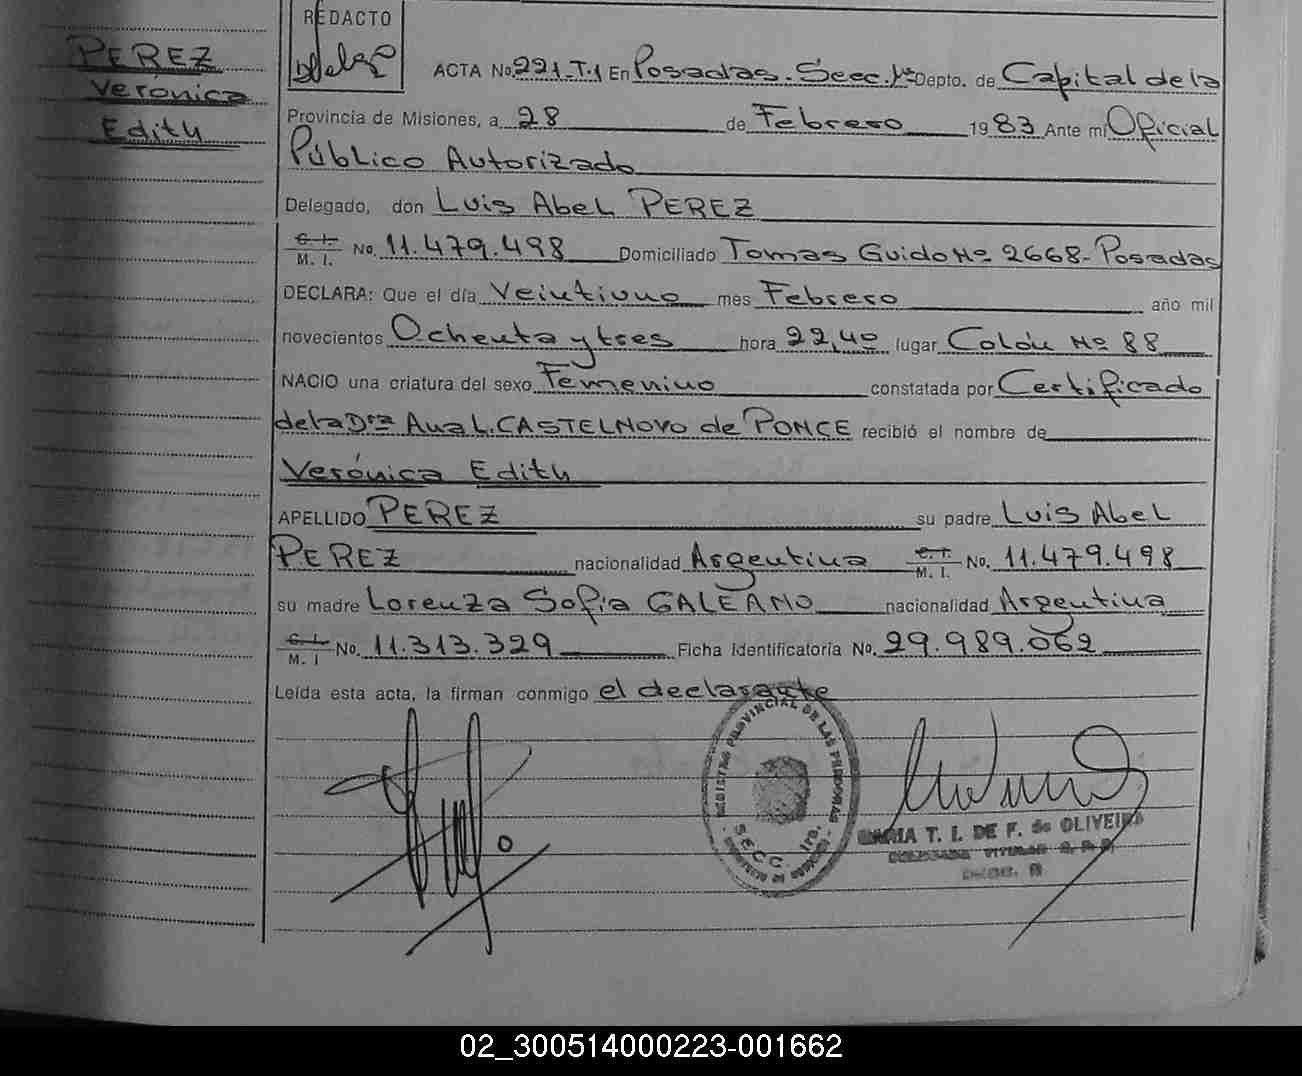 PEREZ
Verónica
Edith
REDACTO
ACTA No. 221-T.1 En Posadas. Secc. 1ª Depto. de Capital de la
Provincia de Misiones, a 28 de Febrero 1983 Ante mi Oficial
Público Autorizado
Delegado, don Luis Abel PEREZ
C. I.
M. I. No. 11.479.498 Domiciliado Tomas Guido Nº 2668- Posadas
DECLARA: Que el día Veintiuno mes Febrero año mil
novecientos Ochenta y tres hora 22,40 lugar Colón Nº 88
NACIO una criatura del sexo Femenino constatada por Certificado
de la Dra Ana L. CASTELNOVO de PONCE recibió el nombre de
Verónica Edith
APELLIDO PEREZ su padre Luis Abel
PEREZ nacionalidad Argentina C. I. M. I. No. 11.479.498
su madre Lorenza Sofia GALEANO nacionalidad Argentina
C. I.
M. I No. 11.313.329 Ficha Identificatoria No. 29.989.062
Leída esta acta, la firman conmigo el declarante
REGISTRO PROVINCIAL DE LAS PERSONAS
SECC. 1ra.
MARIA T. I. DE F. de OLIVEIRA
02_300514000223-001662